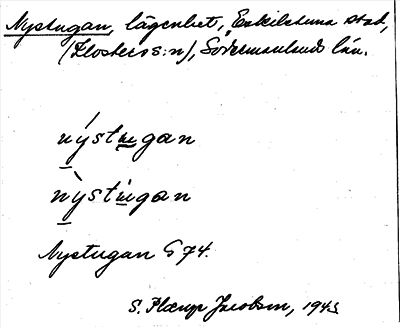 Nystugan, lägenhet, Eskilstuna stad,
(Klosters s:n), Södermanlands län.
nýstu̲gan
nỳstu̲gan
Nystugan G 74.
S. Plærup Jacobson, 1945